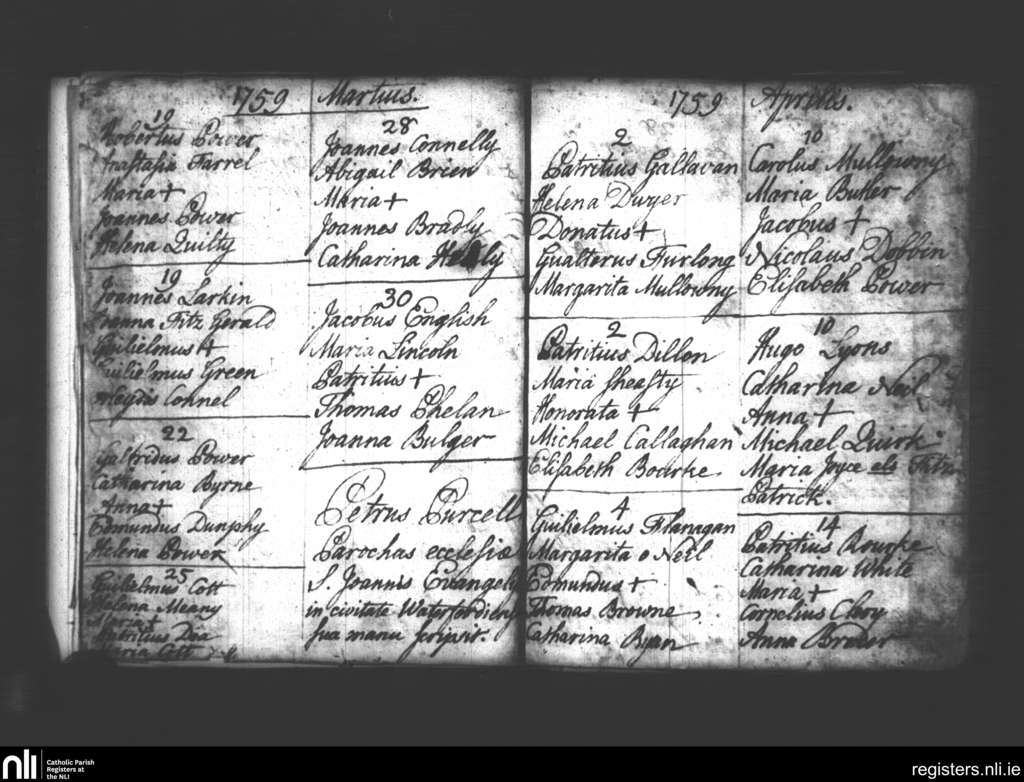 1759 Martius.
19
Robertus Power
Anastasia Farrel
Maria +
Joannes Power
Helena Quilty
19
Joannes Larkin
Joanna Fitz Gerald
Guilielmus +
Guilielmus Green
Connel
22
Galfridus Power
Catharina Byrne
Anna +
Edmundus Dunphy
Helena Power
25
Guilielmus Cott
Helena Meany
Maria +
Patritius Dea
Maria Cott
28
Joannes Connelly
Abigail Brien
Maria +
Joannes Bradly
Catharina
30
Jacobus English
Maria Lincoln
Patritius +
Thomas Phelan
Joanna Bulger
Petrus Purcell
Parochas ecclesiæ
S. Joannis Evangely
in civitate
sua manu scripsit.
1759 Aprilis.
2
Patritius Gallavan
Helena Dwyer
Donatus +
Gualterus Furlong
Margarita Mullowny
2
Patritius Dillon
Maria Sheasty
Honorata +
Michael Callaghan
Elisabeth Bourke
4
Guilielmus Flanagan
Margarita o Neil
Edmundus +
Thomas Browne
Catharina Ryan
10
Carolus Mullowny
Maria Butler
Jacobus +
Nicolaus Dobbin
Elisabeth Power
10
Hugo Lyons
Catharina Neil
Anna +
Michael Quirk
Maria Joyce als Fitz
Patrick.
14
Patritius Rourke
Catharina White
Maria +
Cornelius Clovy
Anna
nli
Catholic Parish
Registers at
the NLI
registers.nli.ie